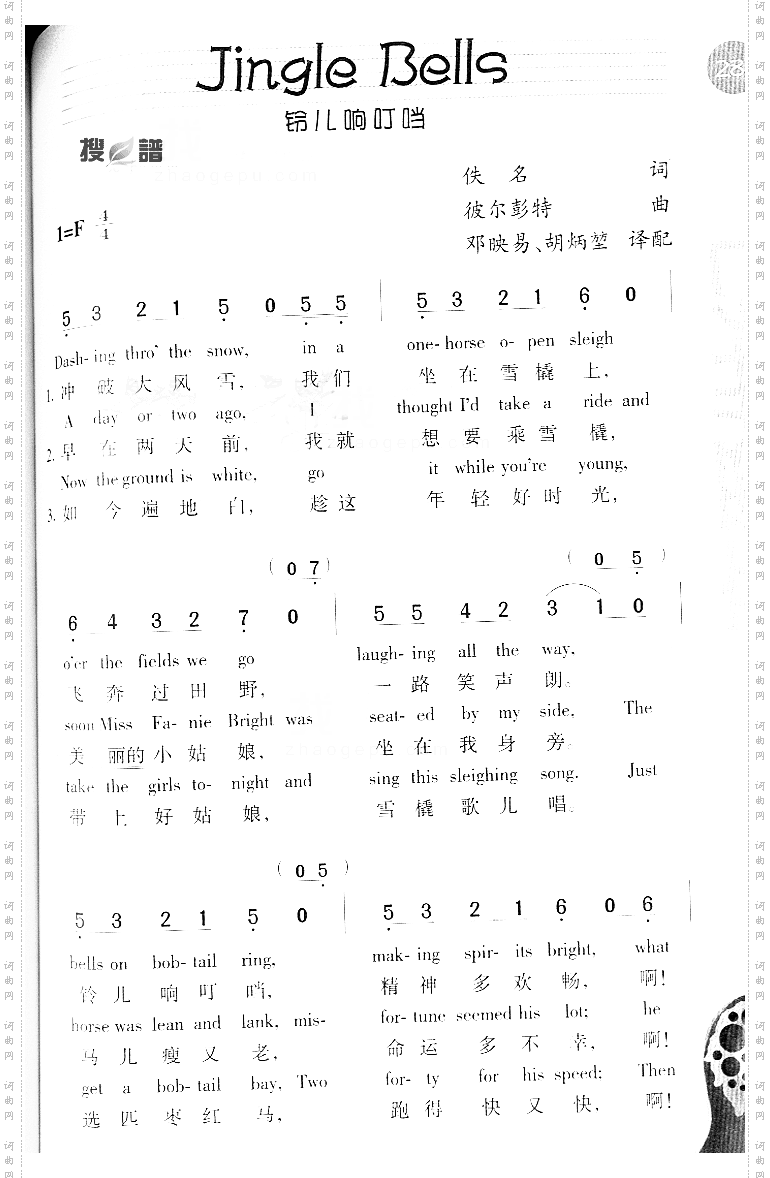 Jingle Bells
铃儿响叮当
搜 譜
佚 名 词
彼尔彭特 曲
1=F 4/4
邓映易、胡炳堃 译配
5 3 2 1 5 0 5 5 | 5 3 2 1 6 0 |
Dash- ing thro' the snow, in a one- horse o- pen sleigh
1. 冲 破 大 风 雪, 我 们 坐 在 雪 橇 上,
A day or two ago, I thought I'd take a ride and
2. 早 在 两 天 前, 我 就 想 要 乘 雪 橇,
Now the ground is white, go it while you're young,
3. 如 今 遍 地 白, 趁 这 年 轻 好 时 光,
( 0 7 ) ( 0 5 )
6 4 3 2 7 0 | 5 5 4 2 3 1 0 |
o'er the fields we go laugh- ing all the way.
飞 奔 过 田 野, 一 路 笑 声 朗。
soon Miss Fa- nie Bright was seat- ed by my side. The
美 丽的 小 姑 娘, 坐 在 我 身 旁。
take the girls to- night and sing this sleighing song. Just
带 上 好 姑 娘, 雪 橇 歌 儿 唱。
( 0 5 )
5 3 2 1 5 0 | 5 3 2 1 6 0 6 |
bells on bob- tail ring, mak- ing spir- its bright, what
铃 儿 响 叮 当, 精 神 多 欢 畅, 啊!
horse was lean and lank, mis- for- tune seemed his lot; he
马 儿 瘦 又 老, 命 运 多 不 幸, 啊!
get a bob- tail bay, Two for- ty for his speed; Then
选 匹 枣 红 马, 跑 得 快 又 快, 啊!